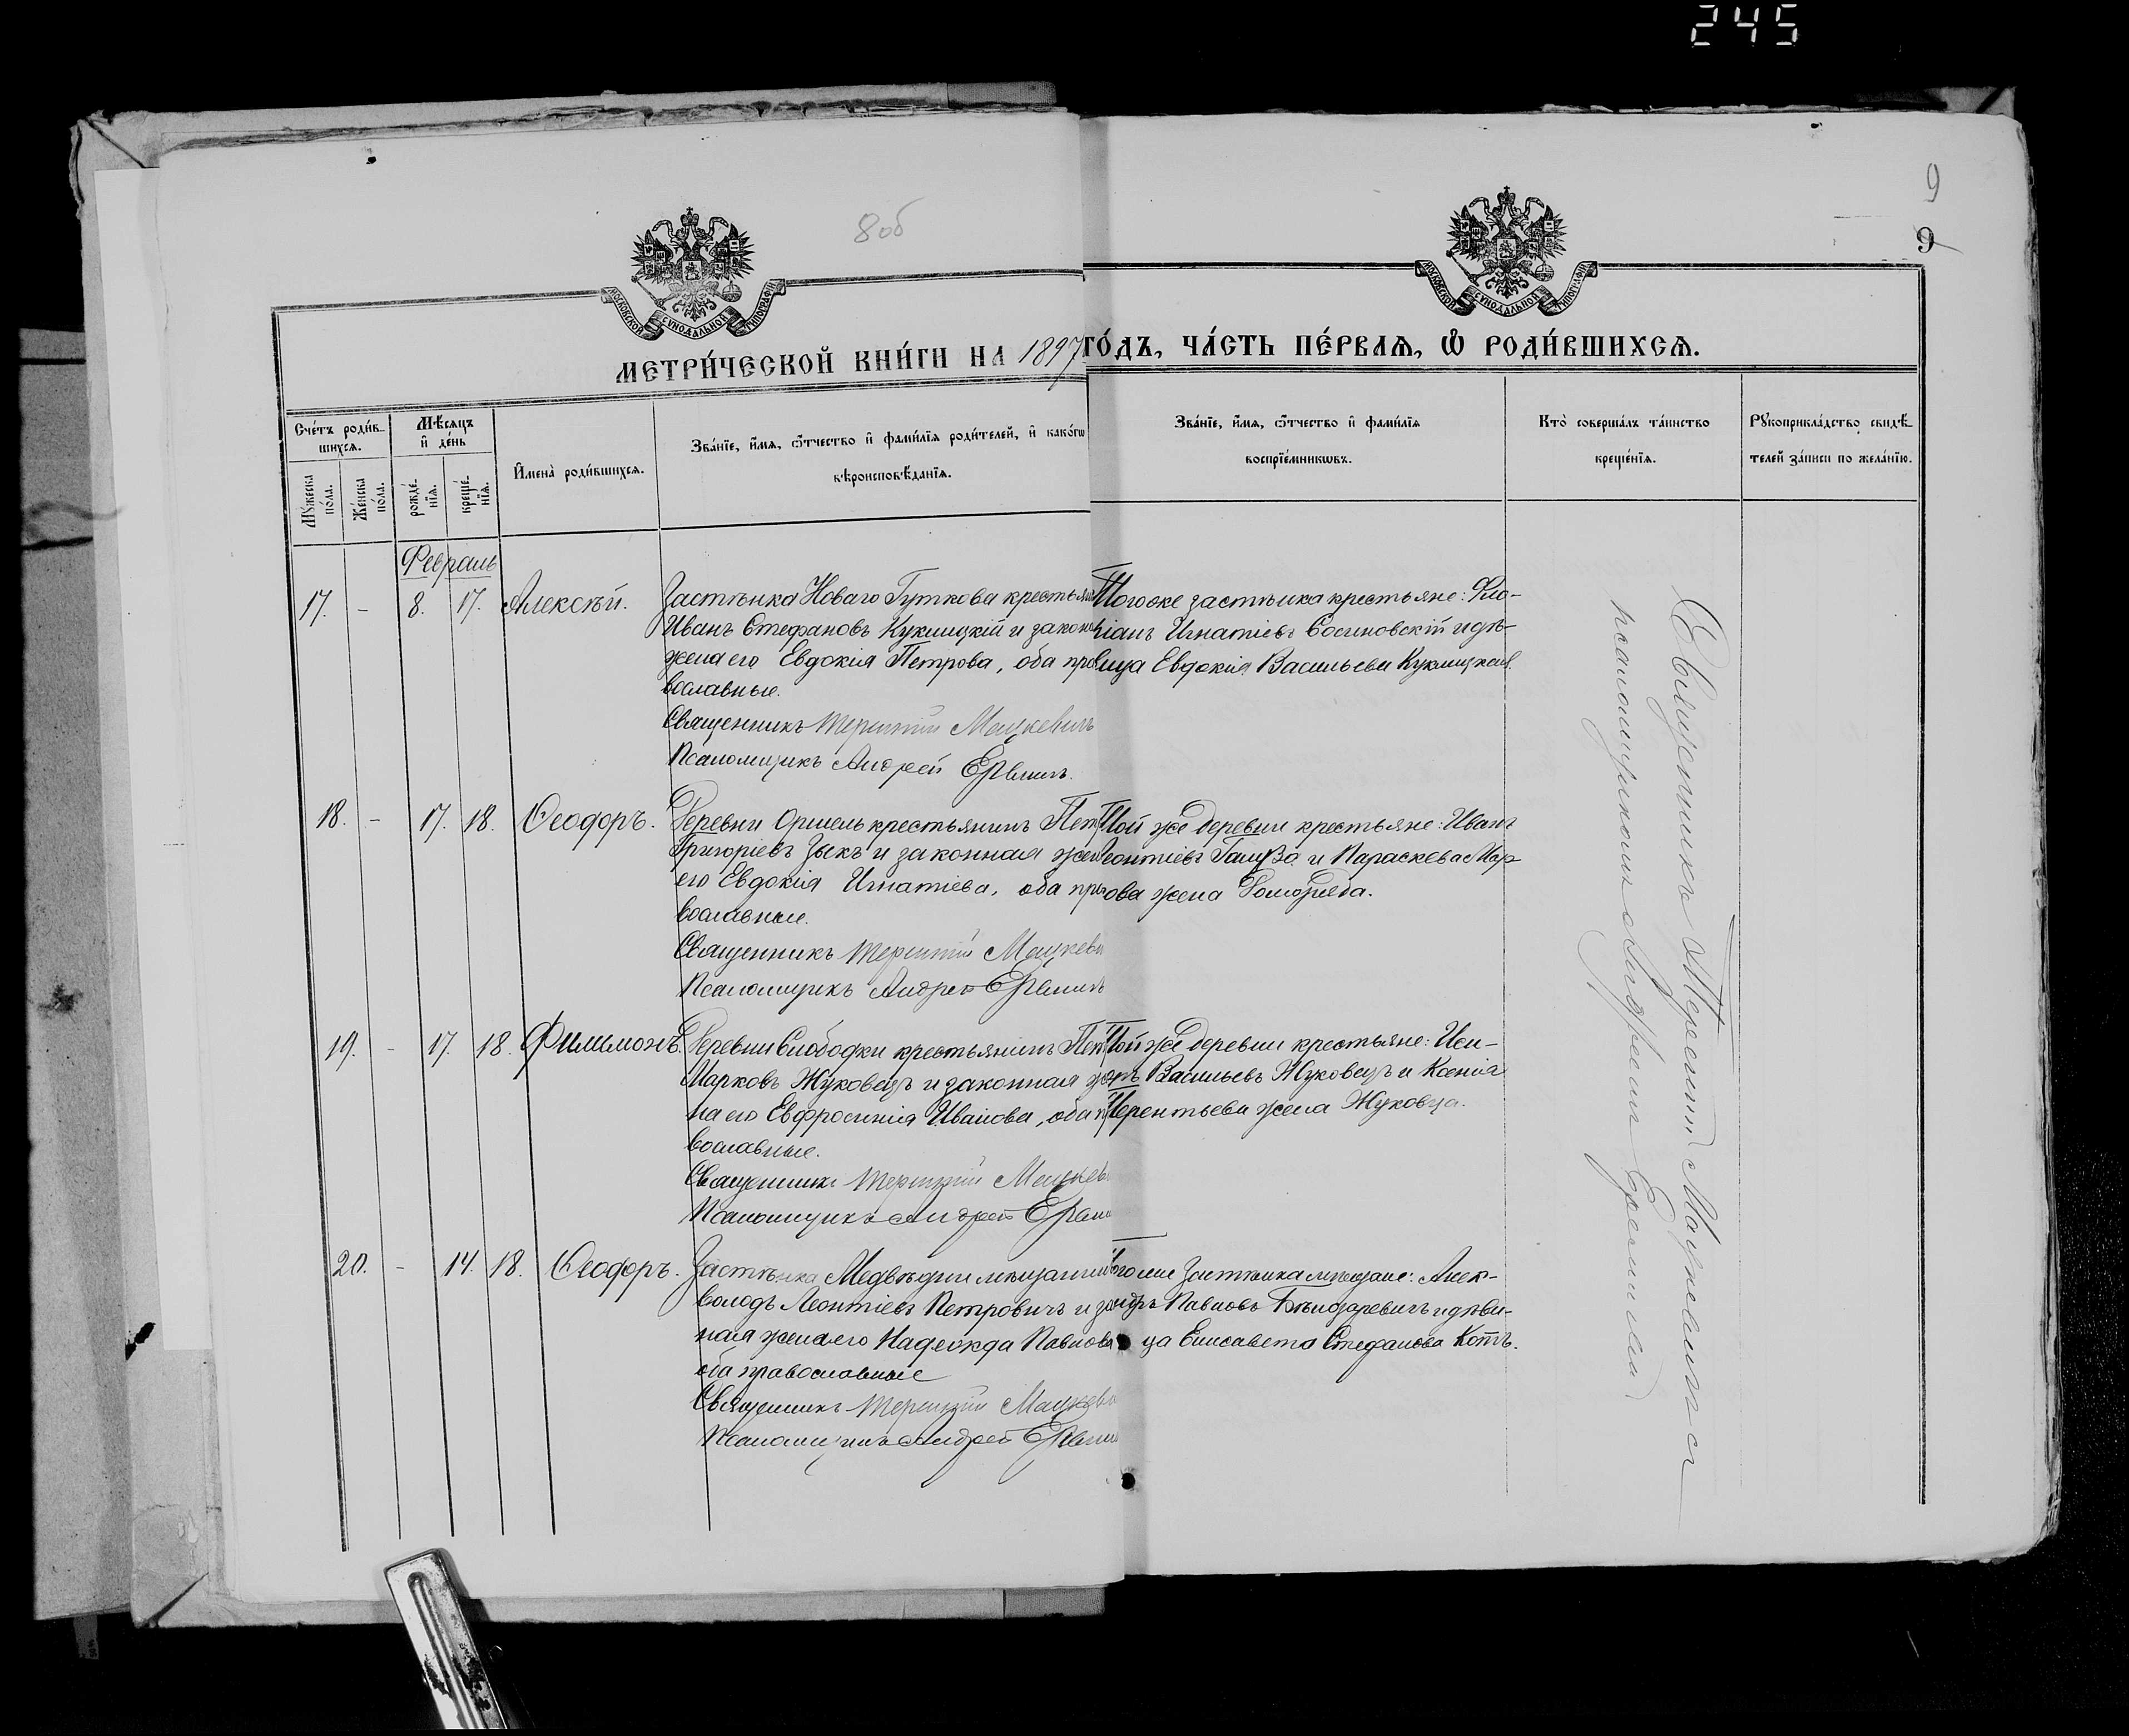 245
8 об
9
9
МОСКОВСКОЙ СѴНОДАЛЬНОЙ ТИПОГРАФІИ
МОСКОВСКОЙ СѴНОДАЛЬНОЙ ТИПОГРАФІИ
МЕТРИ́ЧЕСКОЙ КНИ́ГИ НА 1897 ГО́ДЪ, ЧА́СТЬ ПЕ́РВАѦ, Ѡ РОДИ́ВШИХСѦ.
Сче́тъ роди́в-
шихсѧ.
Мꙋ́жеска по́ла.
Же́нска по́ла.
Мѣ́сѧцъ
и҆ де́нь
рожде́-
нїѧ.
креще́-
нїѧ.
И҆мена̀ роди́вшихсѧ.
Зва́нїе, и҆́мѧ, ѻ҆́тчество и҆ фами́лїѧ роди́телей, и҆ како́гѡ
вѣроисповѣ́данїѧ.
Зва́нїе, и҆́мѧ, ѻ҆́тчество и҆ фами́лїѧ
воспрїе́мникѡвъ.
Кто̀ соверша́лъ та́инство
креще́нїѧ.
Рꙋкоприкла́дство свидѣ́-
телей за́писи по жела́нїю.
Февраль
17. - 8. 17. Алексѣй.
Застѣнка Новаго Гуткова крестьян
Иванъ Стефановъ Кукшицкій и закон
жена его Евдокія Петрова, оба пра
вославные.
Священникъ Терентій Мацкевичъ
Псаломщикъ Андрей Еремичъ.
Тогоже застѣнка крестьяне: Фло-
ріанъ Игнатіевъ Сосиновскій и дѣ-
вица Евдокія Васильева Кукшицкая.
18. - 17. 18. Ѳеодоръ.
Деревни Оршель крестьянинъ Пет
Григоріевъ Зыкъ и законная жен
его Евдокія Игнатіева, оба пра
вославные.
Священникъ Терентій Мацкеви
Псаломщикъ Андрей Еремичъ
Той же деревни крестьяне: Иванъ
Леонтіевъ и Параскева Мар-
ова жена
19. - 17. 18. Филимонъ.
Деревни Слободки крестьянинъ Пет
Марковъ Жуковецъ и законная же
на его Евфросинія Иванова, оба п
вославные.
Священникъ Терентій Мацкев
Псаломщикъ Андрей Ереми
Той же деревни крестьяне: Иси-
доръ Васильевъ Жуковецъ и Ксенія
Терентьева жена Жуковца.
20. - 14. 18. Ѳеодоръ.
Застѣнка Медвѣдни мѣщанин
володъ Леонтіевъ Петровичъ и за
ная жена его Надежда Павлова
оба православные
Священникъ Терентій Мацкеви
Псаломщикъ Андрей Ереми
Того же застѣнка мѣщане: Алек-
сандръ Павловъ и дѣви-
ца Елисавета Стефанова Котъ.
Священникъ Терентій Мацкевичъ съ
псаломщикомъ Андреемъ Еремичемъ